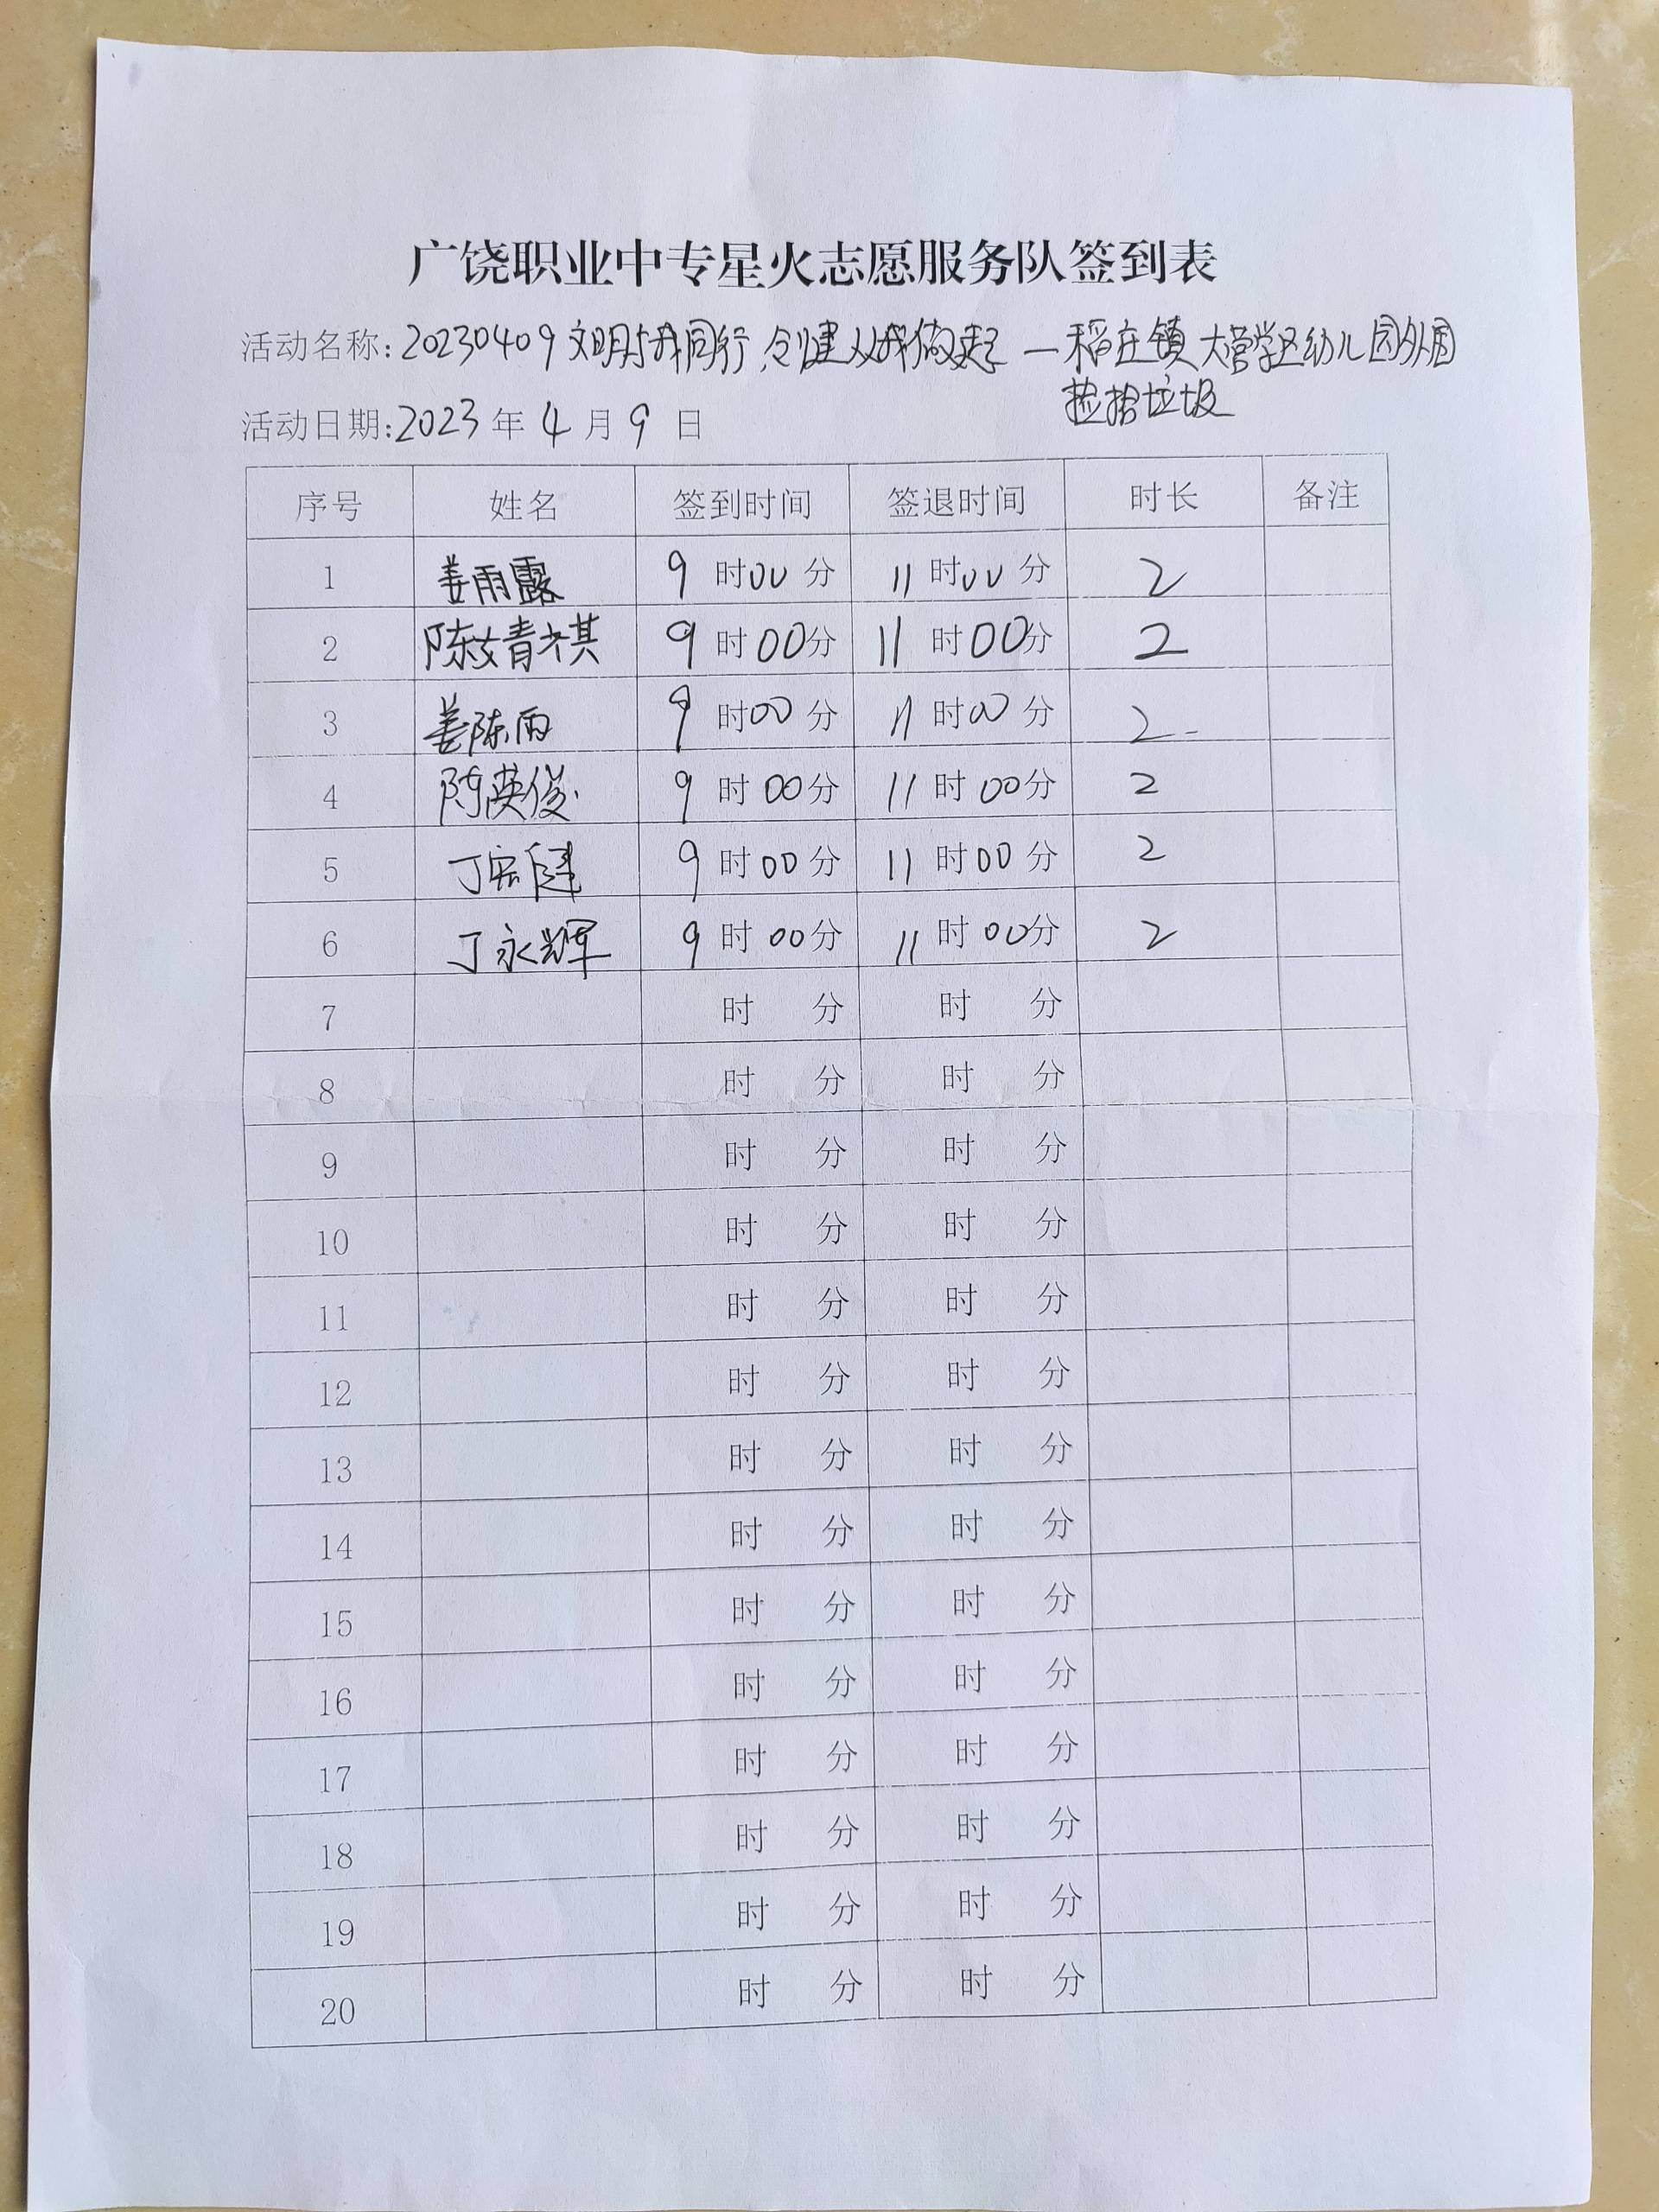 广饶职业中专星火志愿服务队签到表
活动名称:20230409文明与我同行,创建从我做起—稻庄镇大营学区幼儿园外围
捡拾垃圾
活动日期:2023年4月9日
序号 姓名 签到时间 签退时间 时长 备注
1 姜雨露 9时00分 11时00分 2
2 陈婧祺 9时00分 11时00分 2
3 姜陈雨 9时00分 11时00分 2
4 陈英俊 9时00分 11时00分 2
5 丁宏健 9时00分 11时00分 2
6 丁永辉 9时00分 11时00分 2
7 时 分 时 分
8 时 分 时 分
9 时 分 时 分
10 时 分 时 分
11 时 分 时 分
12 时 分 时 分
13 时 分 时 分
14 时 分 时 分
15 时 分 时 分
16 时 分 时 分
17 时 分 时 分
18 时 分 时 分
19 时 分 时 分
20 时 分 时 分